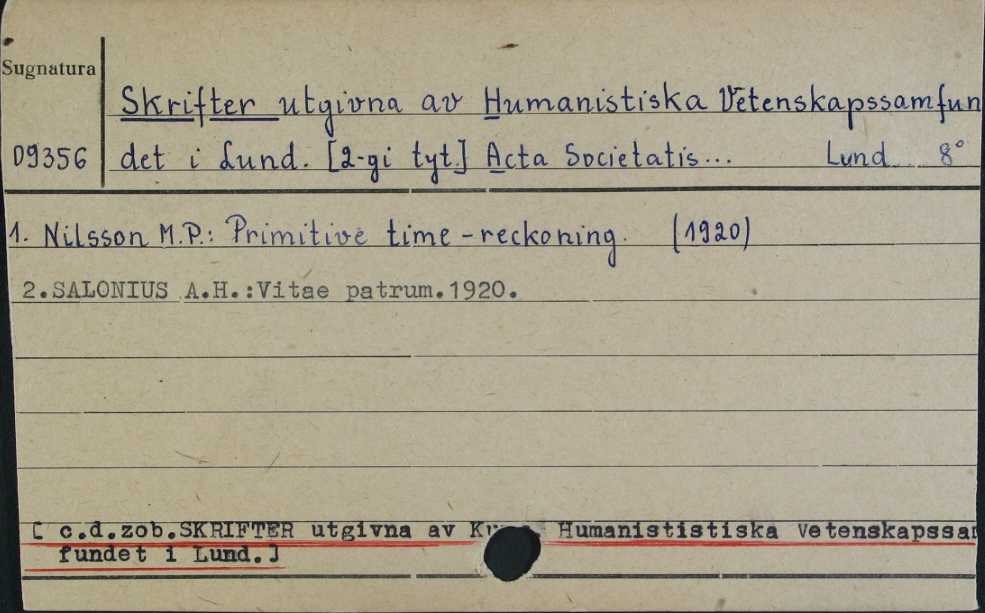 Sugnatura
Skrifter utgivna av Humanistiska Vetenskapssamfun
D9356 det i Lund. [2-gi tyt.] Acta Societatis... Lund 8°
1. Nilsson M.P.: Primitive time-reckoning. (1920)
2.SALONIUS A.H.:Vitae patrum.1920.
[ c.d.zob.SKRIFTER utgivna av Humanististiska Vetenskapssam
fundet i Lund.]